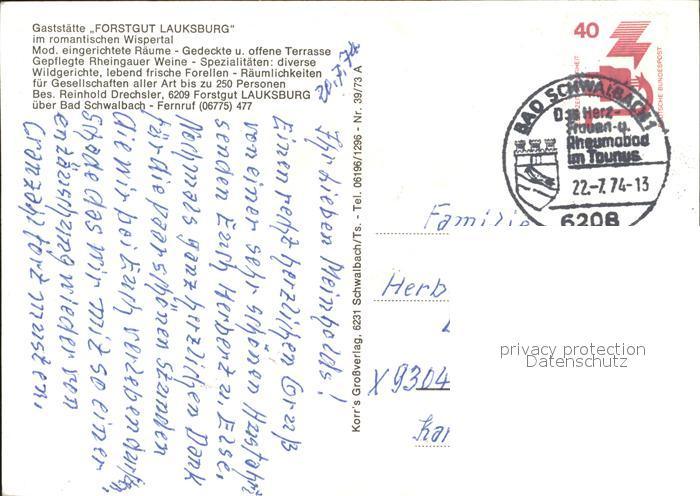 Gaststätte „FORSTGUT LAUKSBURG"
im romantischen Wispertal
Mod. eingerichtete Räume - Gedeckte u. offene Terrasse
Gepflegte Rheingauer Weine - Spezialitäten: diverse
Wildgerichte, lebend frische Forellen - Räumlichkeiten
für Gesellschaften aller Art bis zu 250 Personen
Bes. Reinhold Drechsler, 6209 Forstgut LAUKSBURG
über Bad Schwalbach - Fernruf (06775) 477
Ihr lieben Meinholds!
Einen recht herzlichen Gruß
von einer sehr schönen
senden Euch Herbert u. Else.
Nochmals ganz herzlichen Dank
für die paar schönen Stunden
die wir bei Euch verleben durften,
Schade das wir mit so einer
enzäuschung wieder von
Cranzahl fort musten.
Korr's Großverlag, 6231 Schwalbach/Ts. - Tel. 06196/1296 - Nr. 39/73 A
40
DEUTSCHE BUNDESPOST
BAD SCHWALBACH 1
Das Herz-
Frauen-u.
Rheumabad
im Taunus
22.-7. 74-13
6208
Familie
Herb
X9304
privacy protection
Datenschutz